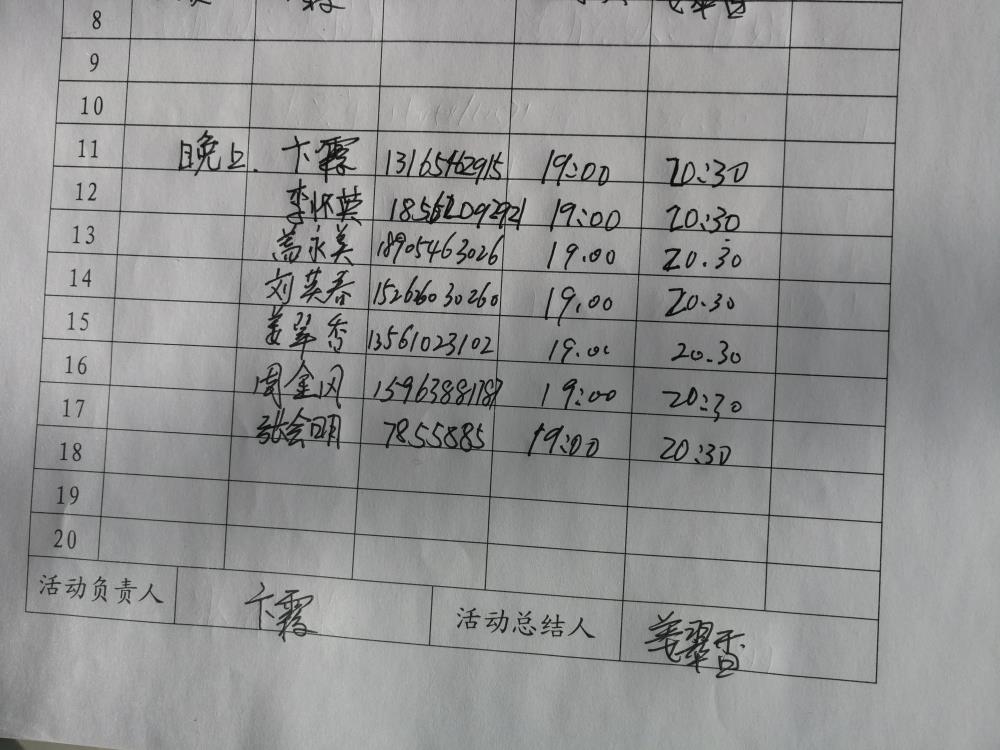 8
9
10
11 晚上. 卞霞 13165462915 19:00 20:30
12 李怀英 18561209292 19:00 20:30
13 高永美 18905463026 19.00 20.30
14 刘英春 152626030260 19.00 20.30
15 姜翠香 13561023102 19.00 20.30
16 周金凤 15963881787 19:00 20:30
17 张会明 7855885 19:00 20:30
18
19
20
活动负责人 卞霞 活动总结人 姜翠香